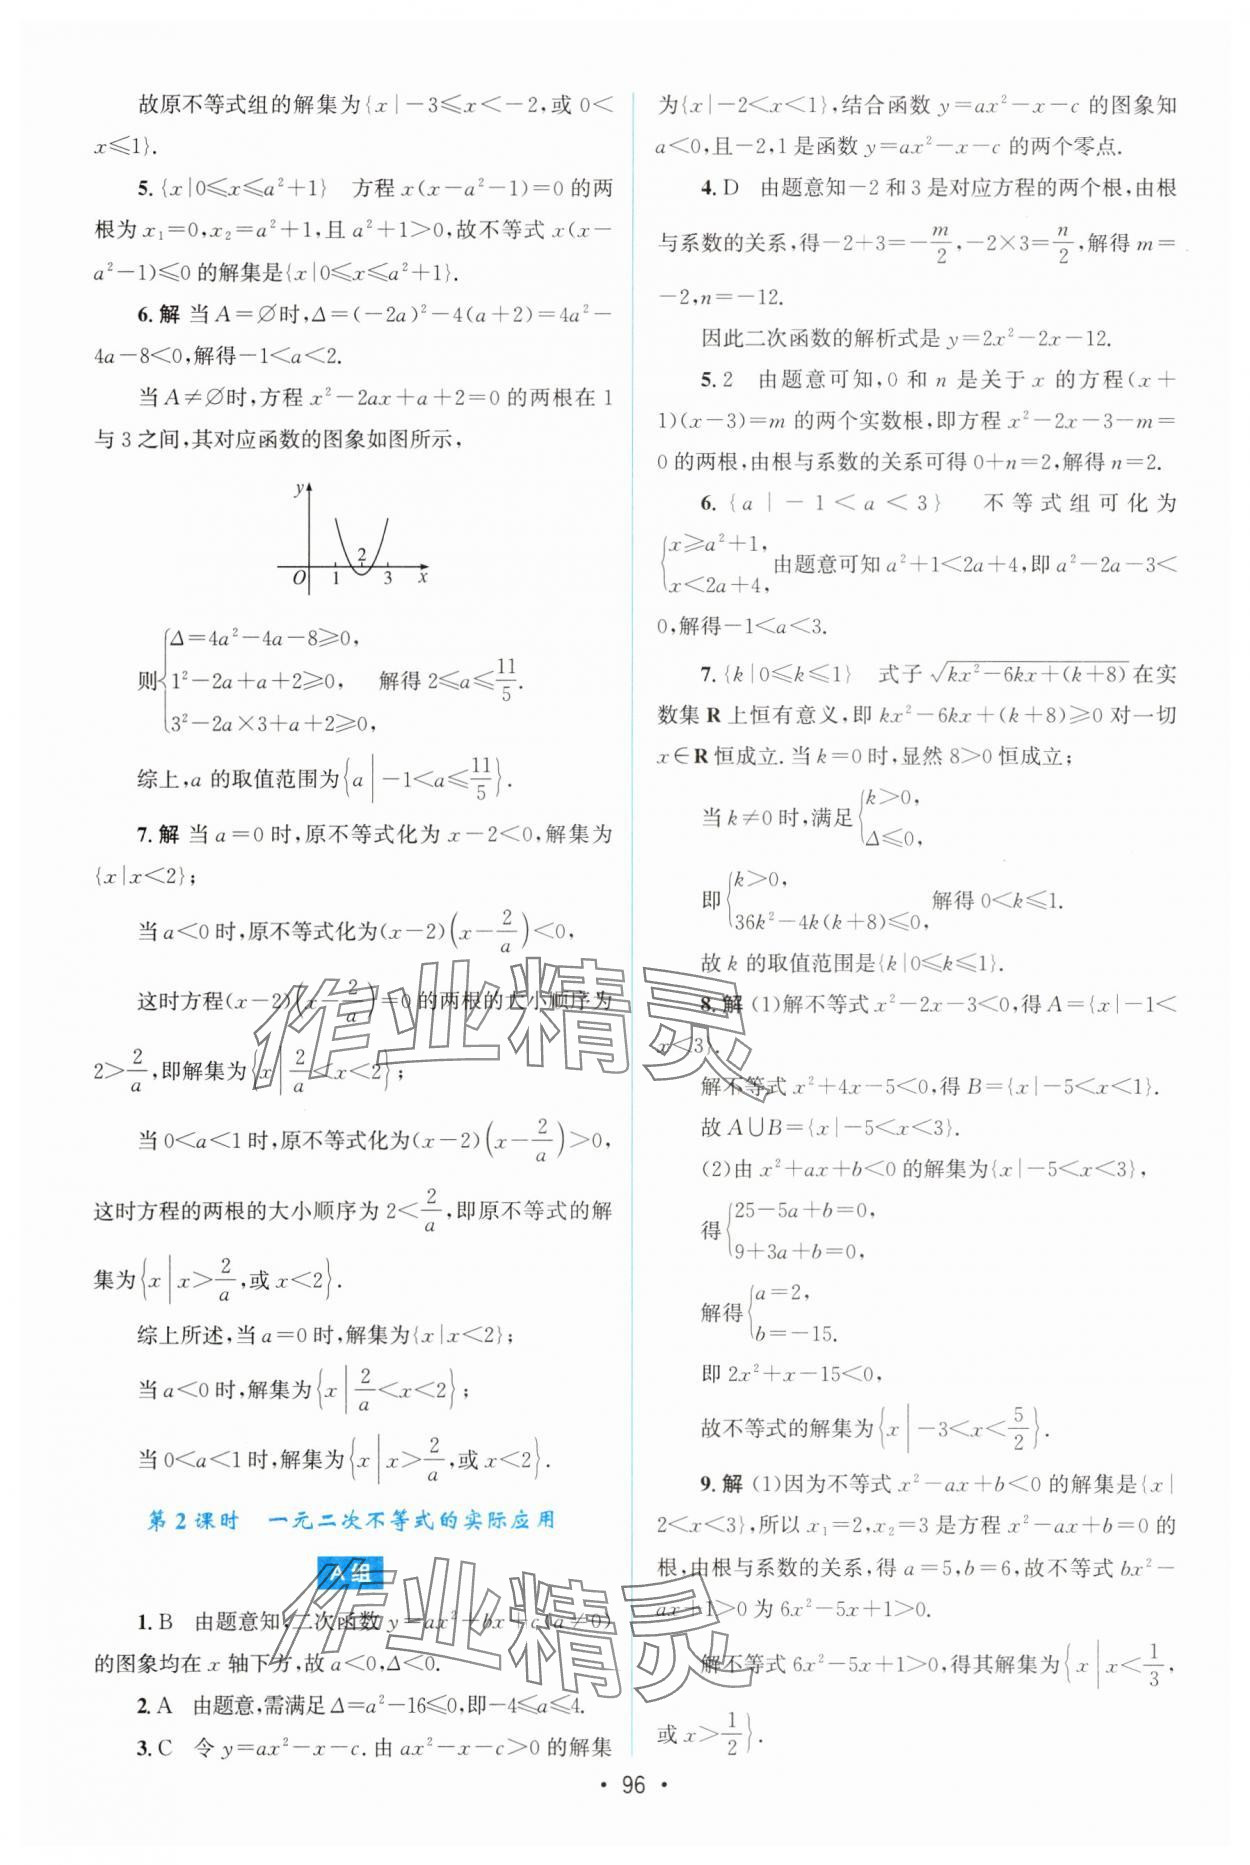 故原不等式组的解集为{x|-3≤x<-2,或0<
x≤1}.
5. {x|0≤x≤a²+1} 方程 x(x-a²-1)=0的两
根为 x₁=0,x₂=a²+1,且 a²+1>0,故不等式 x(x-
a²-1)≤0的解集是{x|0≤x≤a²+1}.
6. 解 当A=∅时,Δ=(-2a)²-4(a+2)=4a²-
4a-8<0,解得-1<a<2.
当A≠∅时,方程 x²-2ax+a+2=0的两根在1
与3之间,其对应函数的图象如图所示,
y
2
O 1 3 x
则{Δ=4a²-4a-8≥0,
1²-2a+a+2≥0,
3²-2a×3+a+2≥0,
解得 2≤a≤11/5.
综上,a的取值范围为{a|-1<a≤11/5}.
7. 解 当a=0时,原不等式化为 x-2<0,解集为
{x|x<2};
当a<0时,原不等式化为(x-2)(x-2/a)<0,
这时方程(x-2)(x-2/a)=0的两根的大小顺序为
2>2/a,即解集为{x|2/a<x<2};
当0<a<1时,原不等式化为(x-2)(x-2/a)>0,
这时方程的两根的大小顺序为2<2/a,即原不等式的解
集为{x|x>2/a,或x<2}.
综上所述,当a=0时,解集为{x|x<2};
当a<0时,解集为{x|2/a<x<2};
当0<a<1时,解集为{x|x>2/a,或x<2}.
第2课时 一元二次不等式的实际应用
A组
1. B 由题意知,二次函数 y=ax²+bx+c(a≠0)
的图象均在x轴下方,故a<0,Δ<0.
2. A 由题意,需满足Δ=a²-16≤0,即-4≤a≤4.
3. C 令 y=ax²-x-c.由 ax²-x-c>0 的解集
为{x|-2<x<1},结合函数 y=ax²-x-c 的图象知
a<0,且-2,1是函数 y=ax²-x-c 的两个零点.
4. D 由题意知-2和3是对应方程的两个根,由根
与系数的关系,得-2+3=-m/2,-2×3=n/2,解得 m=
-2,n=-12.
因此二次函数的解析式是 y=2x²-2x-12.
5. 2 由题意可知,0和n是关于x的方程(x+
1)(x-3)=m的两个实数根,即方程 x²-2x-3-m=
0的两根,由根与系数的关系可得0+n=2,解得n=2.
6. {a|-1<a<3} 不等式组可化为
{x≥a²+1,
x<2a+4,
由题意可知 a²+1<2a+4,即 a²-2a-3<
0,解得-1<a<3.
7. {k|0≤k≤1} 式子 √(kx²-6kx+(k+8)) 在实
数集R上恒有意义,即 kx²-6kx+(k+8)≥0对一切
x∈R恒成立.当k=0时,显然8>0恒成立;
当k≠0时,满足{k>0,
Δ≤0,
即{k>0,
36k²-4k(k+8)≤0,
解得0<k≤1.
故k的取值范围是{k|0≤k≤1}.
8. 解 (1)解不等式 x²-2x-3<0,得A={x|-1<
x<3}.
解不等式 x²+4x-5<0,得B={x|-5<x<1}.
故A∪B={x|-5<x<3}.
(2)由 x²+ax+b<0的解集为{x|-5<x<3},
得{25-5a+b=0,
9+3a+b=0,
解得{a=2,
b=-15.
即 2x²+x-15<0,
故不等式的解集为{x|-3<x<5/2}.
9. 解 (1)因为不等式 x²-ax+b<0的解集是{x|
2<x<3},所以 x₁=2,x₂=3是方程 x²-ax+b=0的
根,由根与系数的关系,得a=5,b=6,故不等式 bx²-
ax+1>0为6x²-5x+1>0.
解不等式6x²-5x+1>0,得其解集为{x|x<1/3,
或x>1/2}.
· 96 ·
作业精灵
作业精灵